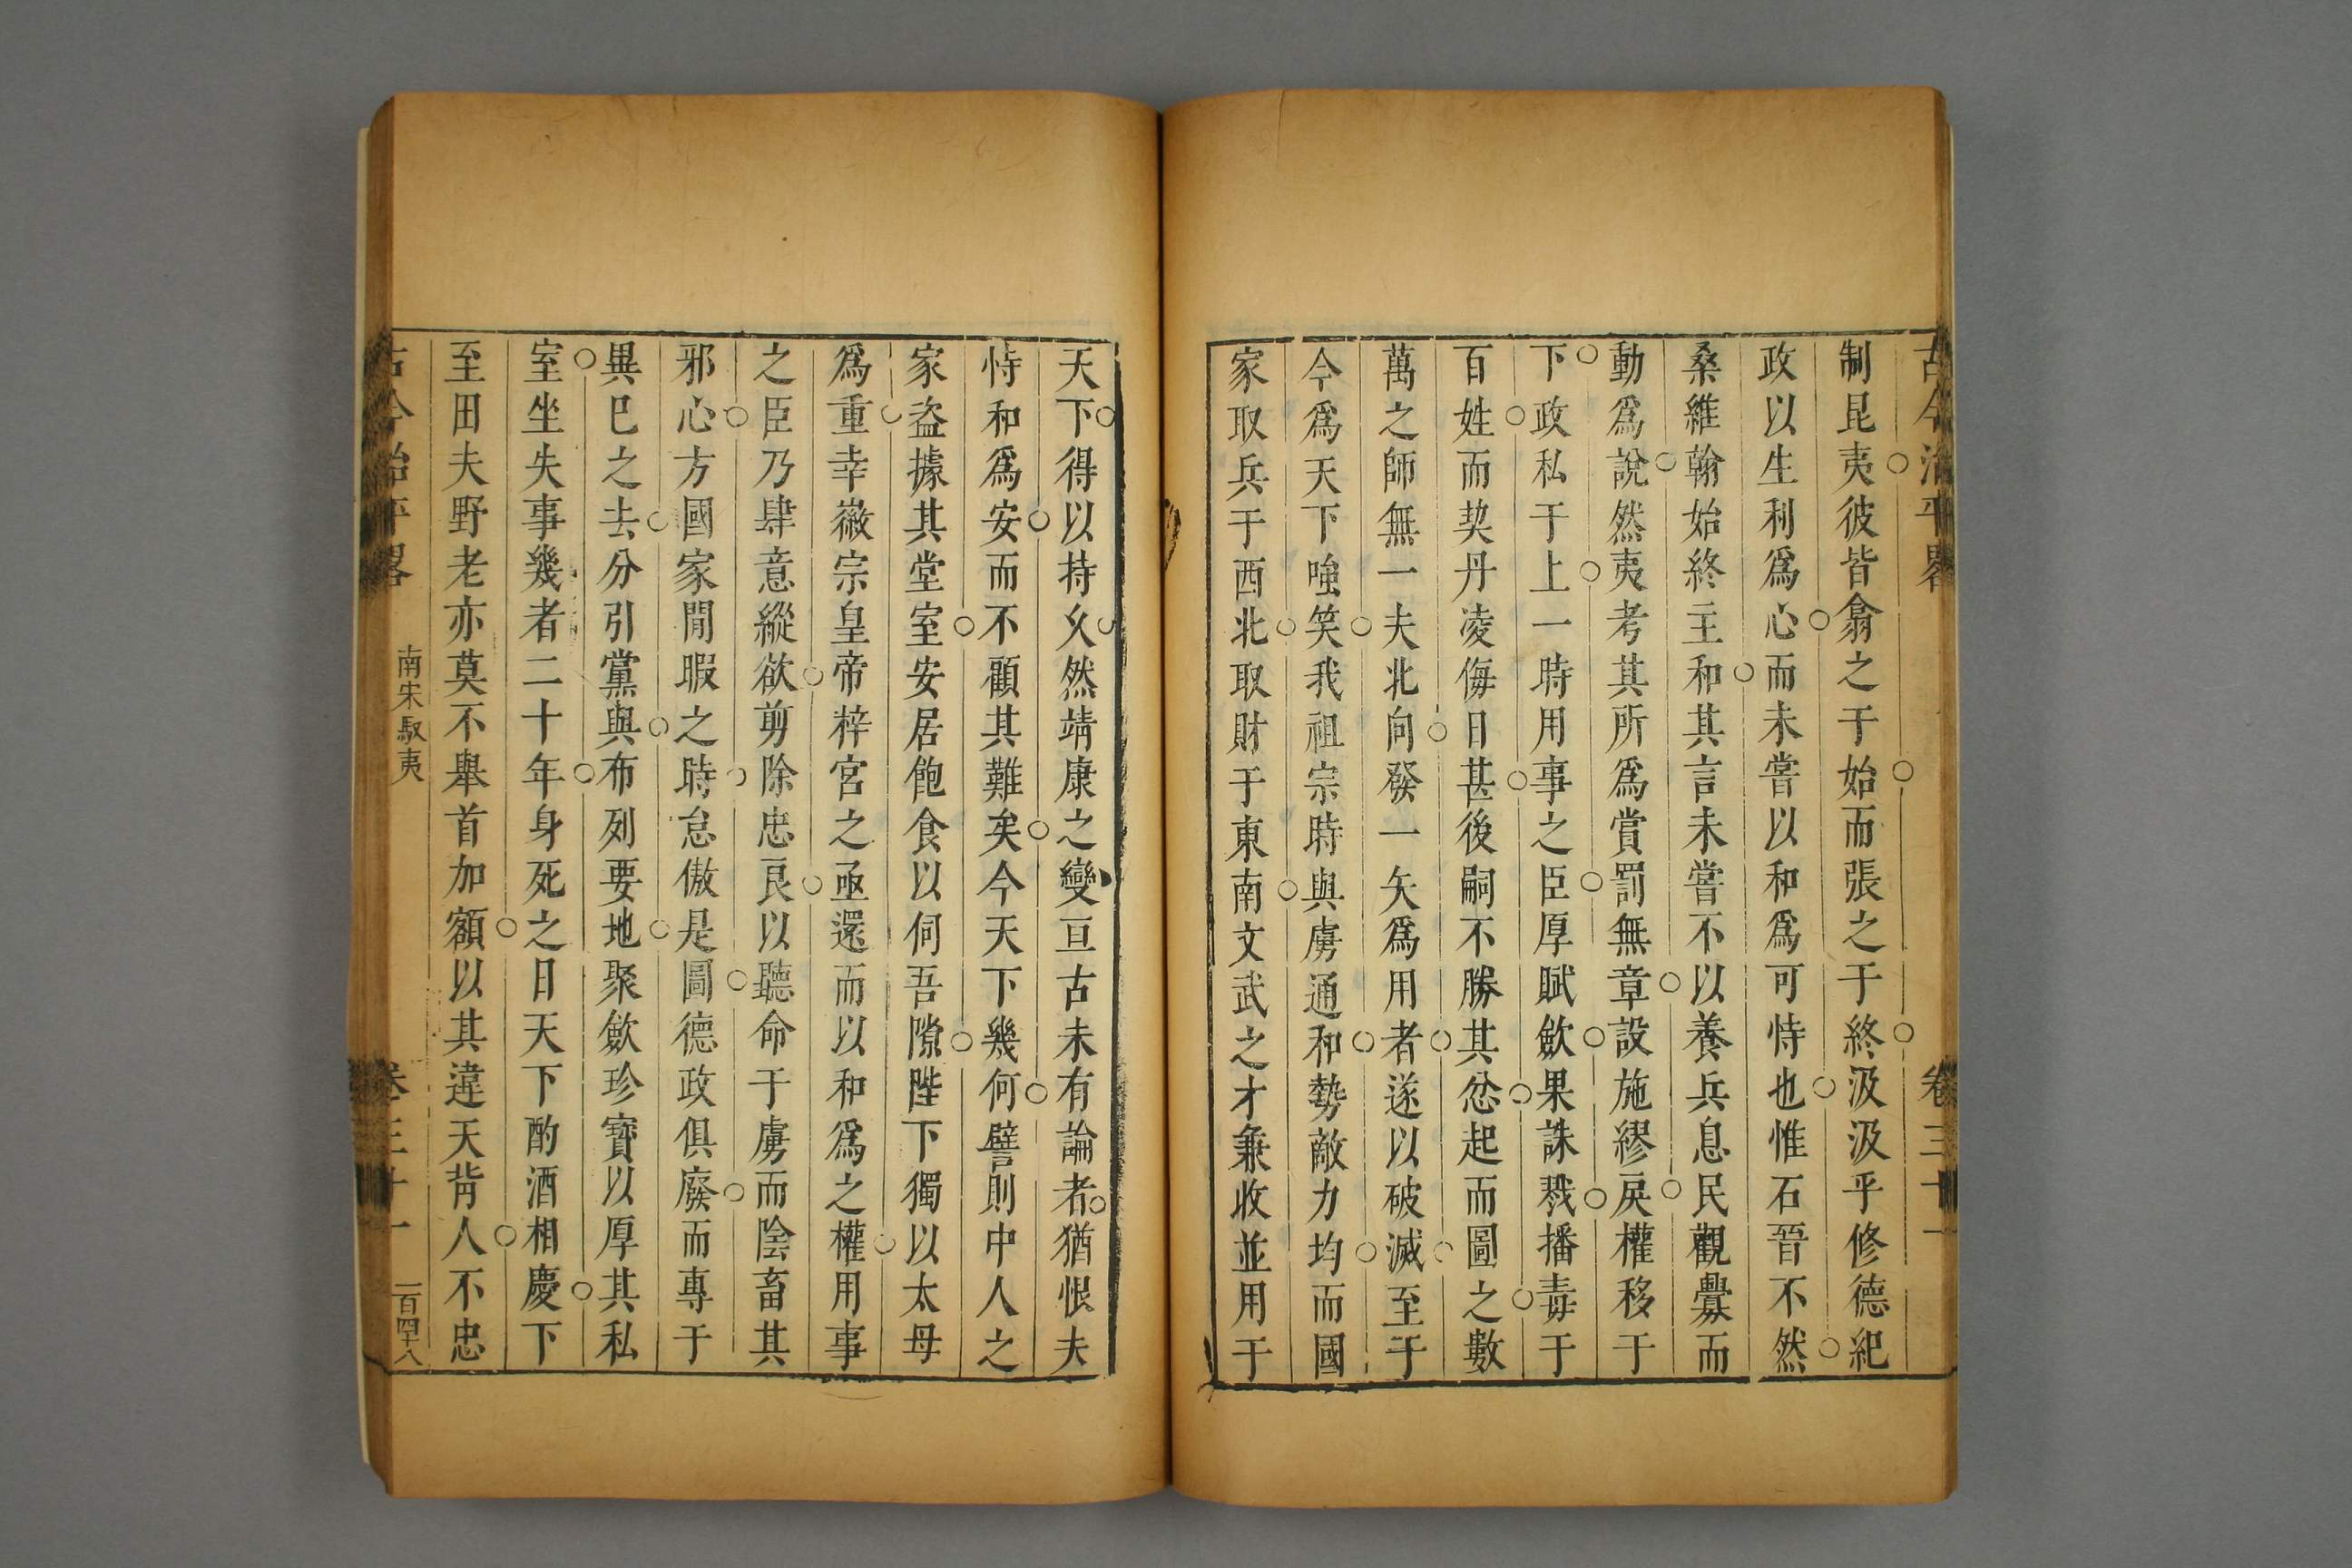 古今治平畧 卷三十一
制昆夷彼皆翕之于始而張之于終汲汲乎修德紀
政以生利爲心而未嘗以和爲可恃也惟石晉不然
桑維翰始終主和其言未嘗不以養兵息民觀釁而
動爲說然夷考其所爲賞罰無章設施繆戾權移于
下政私于上一時用事之臣厚賦歛果誅戮播毒于
百姓而契丹凌侮日甚後嗣不勝其忿起而圖之數
萬之師無一夫北向發一矢爲用者遂以破滅至于
今爲天下嗤笑我祖宗時與虜通和勢敵力均而國
家取兵于西北取財于東南文武之才兼收並用于
天下得以持久然靖康之變亘古未有論者猶恨夫
恃和爲安而不顧其難矣今天下幾何譬則中人之
家盜據其堂室安居飽食以伺吾隙陛下獨以太母
爲重幸徽宗皇帝梓宮之亟還而以和爲之權用事
之臣乃肆意縱欲剪除忠良以聽命于虜而陰畜其
邪心方國家閒暇之時怠傲是圖德政俱廢而專于
異巳之去分引黨與布列要地聚歛珍寶以厚其私
室坐失事幾者二十年身死之日天下酌酒相慶下
至田夫野老亦莫不舉首加額以其違天背人不忠
古今治平畧 南宋馭夷 卷三十一 一百四十八